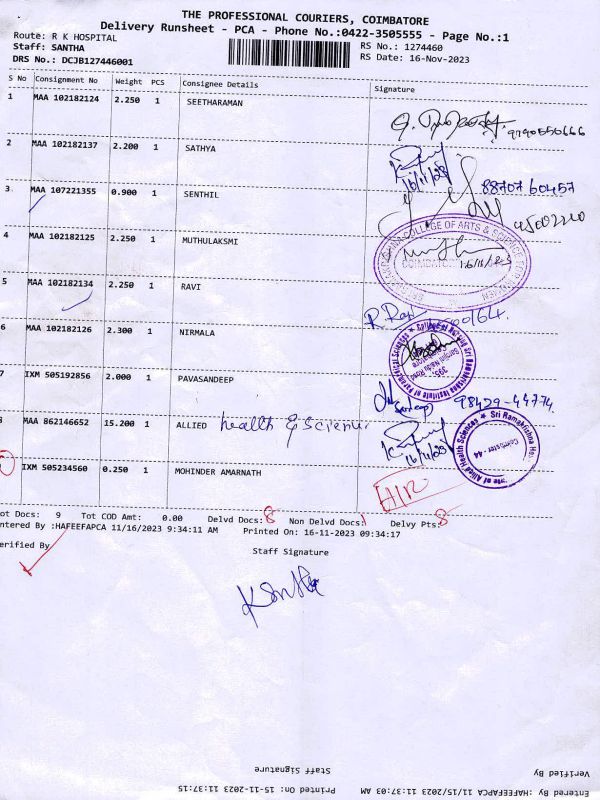 THE PROFESSIONAL COURIERS, COIMBATORE
Delivery Runsheet - PCA - Phone No.:0422-3505555 - Page No.:1
Route: R K HOSPITAL
Staff: SANTHA RS No.: 1274460
DRS No.: DCJB127446001 RS Date: 16-Nov-2023
S No Consignment No Weight PCS Consignee Details Signature
1 MAA 102182124 2.250 1 SEETHARAMAN
9790550666
2 MAA 102182137 2.200 1 SATHYA
16/11/23
88707 60457
3 MAA 107221355 0.900 1 SENTHIL
4 MAA 102182125 2.250 1 MUTHULAKSMI
COLLEGE OF ARTS & SCIENCE
16/11/23
5 MAA 102182134 2.250 1 RAVI
R. Ravi
6 MAA 102182126 2.300 1 NIRMALA
College of Nursing Sri Ramakrishna Institute of Paramedical Sciences
395, Sarojini Naidu Road
7 IXM 505192856 2.000 1 PAVASANDEEP
98429-44774
8 MAA 862146652 15.200 1 ALLIED health & Science
16/11/23
Sri Ramakrishna
Institute of Allied Health Sciences
Coimbatore - 44
IXM 505234560 0.250 1 MOHINDER AMARNATH
Tot Docs: 9 Tot COD Amt: 0.00 Delvd Docs: 8 Non Delvd Docs: 1 Delvy Pts: 8
Entered By :HAFEEFAPCA 11/16/2023 9:34:11 AM Printed On: 16-11-2023 09:34:17
Verified By
Staff Signature
K Santha
Staff Signature
Verified By
Printed On: 15-11-2023 11:37:15
Entered By :HAFEEFAPCA 11/15/2023 11:37:03 AM